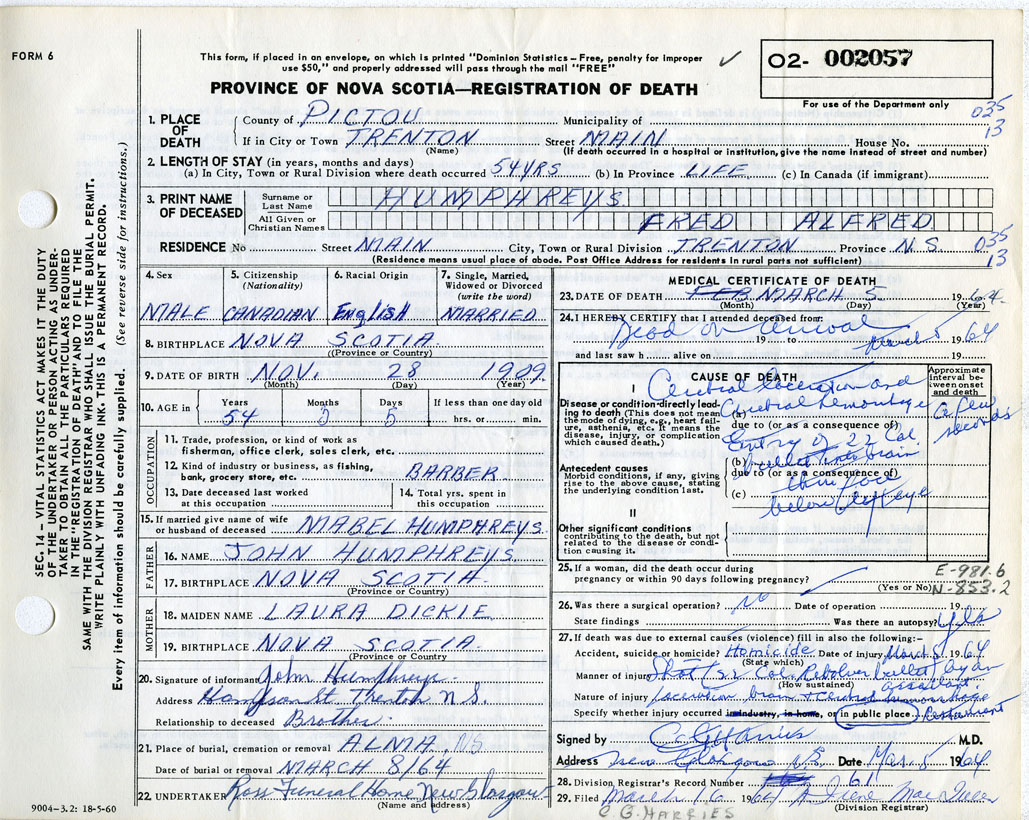 FORM 6
This form, if placed in an envelope, on which is printed "Dominion Statistics – Free, penalty for improper
use $50," and properly addressed will pass through the mail "FREE"
02- 002057
PROVINCE OF NOVA SCOTIA—REGISTRATION OF DEATH
For use of the Department only
035
13
1. PLACE OF DEATH
County of PICTOU Municipality of
If in City or Town TRENTON Street MAIN House No.
(Name) (If death occurred in a hospital or institution, give the name instead of street and number)
2. LENGTH OF STAY (in years, months and days)
(a) In City, Town or Rural Division where death occurred 54 YRS (b) In Province LIFE (c) In Canada (if immigrant)
3. PRINT NAME OF DECEASED
Surname or Last Name HUMPHREYS
All Given or Christian Names FRED ALFRED
RESIDENCE No Street MAIN City, Town or Rural Division TRENTON Province N.S. 035
13
(Residence means usual place of abode. Post Office Address for residents in rural parts not sufficient)
4. Sex 5. Citizenship (Nationality) 6. Racial Origin 7. Single, Married, Widowed or Divorced (write the word)
MALE CANADIAN English MARRIED
8. BIRTHPLACE NOVA SCOTIA
(Province or Country)
9. DATE OF BIRTH NOV. 28 1909
(Month) (Day) (Year)
10. AGE in Years Months Days If less than one day old
54 3 5 hrs. or min.
OCCUPATION
11. Trade, profession, or kind of work as
fisherman, office clerk, sales clerk, etc.
12. Kind of industry or business, as fishing,
bank, grocery store, etc. BARBER
13. Date deceased last worked
at this occupation
14. Total yrs. spent in
this occupation
15. If married give name of wife
or husband of deceased MABEL HUMPHREYS
FATHER
16. NAME JOHN HUMPHREYS
17. BIRTHPLACE NOVA SCOTIA
(Province or Country)
MOTHER
18. MAIDEN NAME LAURA DICKIE
19. BIRTHPLACE NOVA SCOTIA
(Province or Country)
20. Signature of informant John Humphreys
Address St. Trenton N.S.
Relationship to deceased Brother
21. Place of burial, cremation or removal ALMA, NS
Date of burial or removal MARCH 8/64
22. UNDERTAKER Ross Funeral Home New Glasgow
(Name and address)
9004-3.2: 18-5-60
SEC. 14 – VITAL STATISTICS ACT MAKES IT THE DUTY
OF THE UNDERTAKER OR PERSON ACTING AS UNDER-
TAKER TO OBTAIN ALL THE PARTICULARS REQUIRED
IN THE "REGISTRATION OF DEATH" AND TO FILE THE
SAME WITH THE DIVISION REGISTRAR WHO SHALL ISSUE THE BURIAL PERMIT.
WRITE PLAINLY WITH UNFADING INK. THIS IS A PERMANENT RECORD.
Every item of information should be carefully supplied. (See reverse side for instructions.)
MEDICAL CERTIFICATE OF DEATH
23. DATE OF DEATH FEB MARCH 5 1964
(Month) (Day) (Year)
24. I HEREBY CERTIFY that I attended deceased from:
Dead on Arrival
19 to March 5 1964
and last saw h alive on 19
CAUSE OF DEATH
Approximate interval between onset and death
I
Cerebral laceration and
Disease or condition directly leading to death (This does not mean the mode of dying, e.g., heart failure, asthenia, etc. It means the disease, injury, or complication which caused death.)
(a) Cerebral hemorrhage
A few seconds
due to (or as a consequence of)
Entry of 22 Cal.
Antecedent causes
Morbid conditions, if any, giving rise to the above cause, stating the underlying condition last.
(b) bullet into brain
due to (or as a consequence of)
(c)
below left eye
II
Other significant conditions
contributing to the death, but not related to the disease or condition causing it.
25. If a woman, did the death occur during
pregnancy or within 90 days following pregnancy?
(Yes or No)
E-981.6
N-853.2
26. Was there a surgical operation? no Date of operation 19
State findings Was there an autopsy? yes
27. If death was due to external causes (violence) fill in also the following:-
Accident, suicide or homicide? Homicide Date of injury March 5 1964
(State which)
Manner of injury Shot (22 Cal. Revolver bullet by an
(How sustained) assailant
Nature of injury laceration brain & cerebral hemorrhage
Specify whether injury occurred in industry, in home, or in public place Restaurant
Signed by C. G. Harries M.D.
Address New Glasgow N.S. Date Mar. 5 1964
28. Division Registrar's Record Number 611
29. Filed March 16 1964
(Division Registrar)
C. G. HARRIES